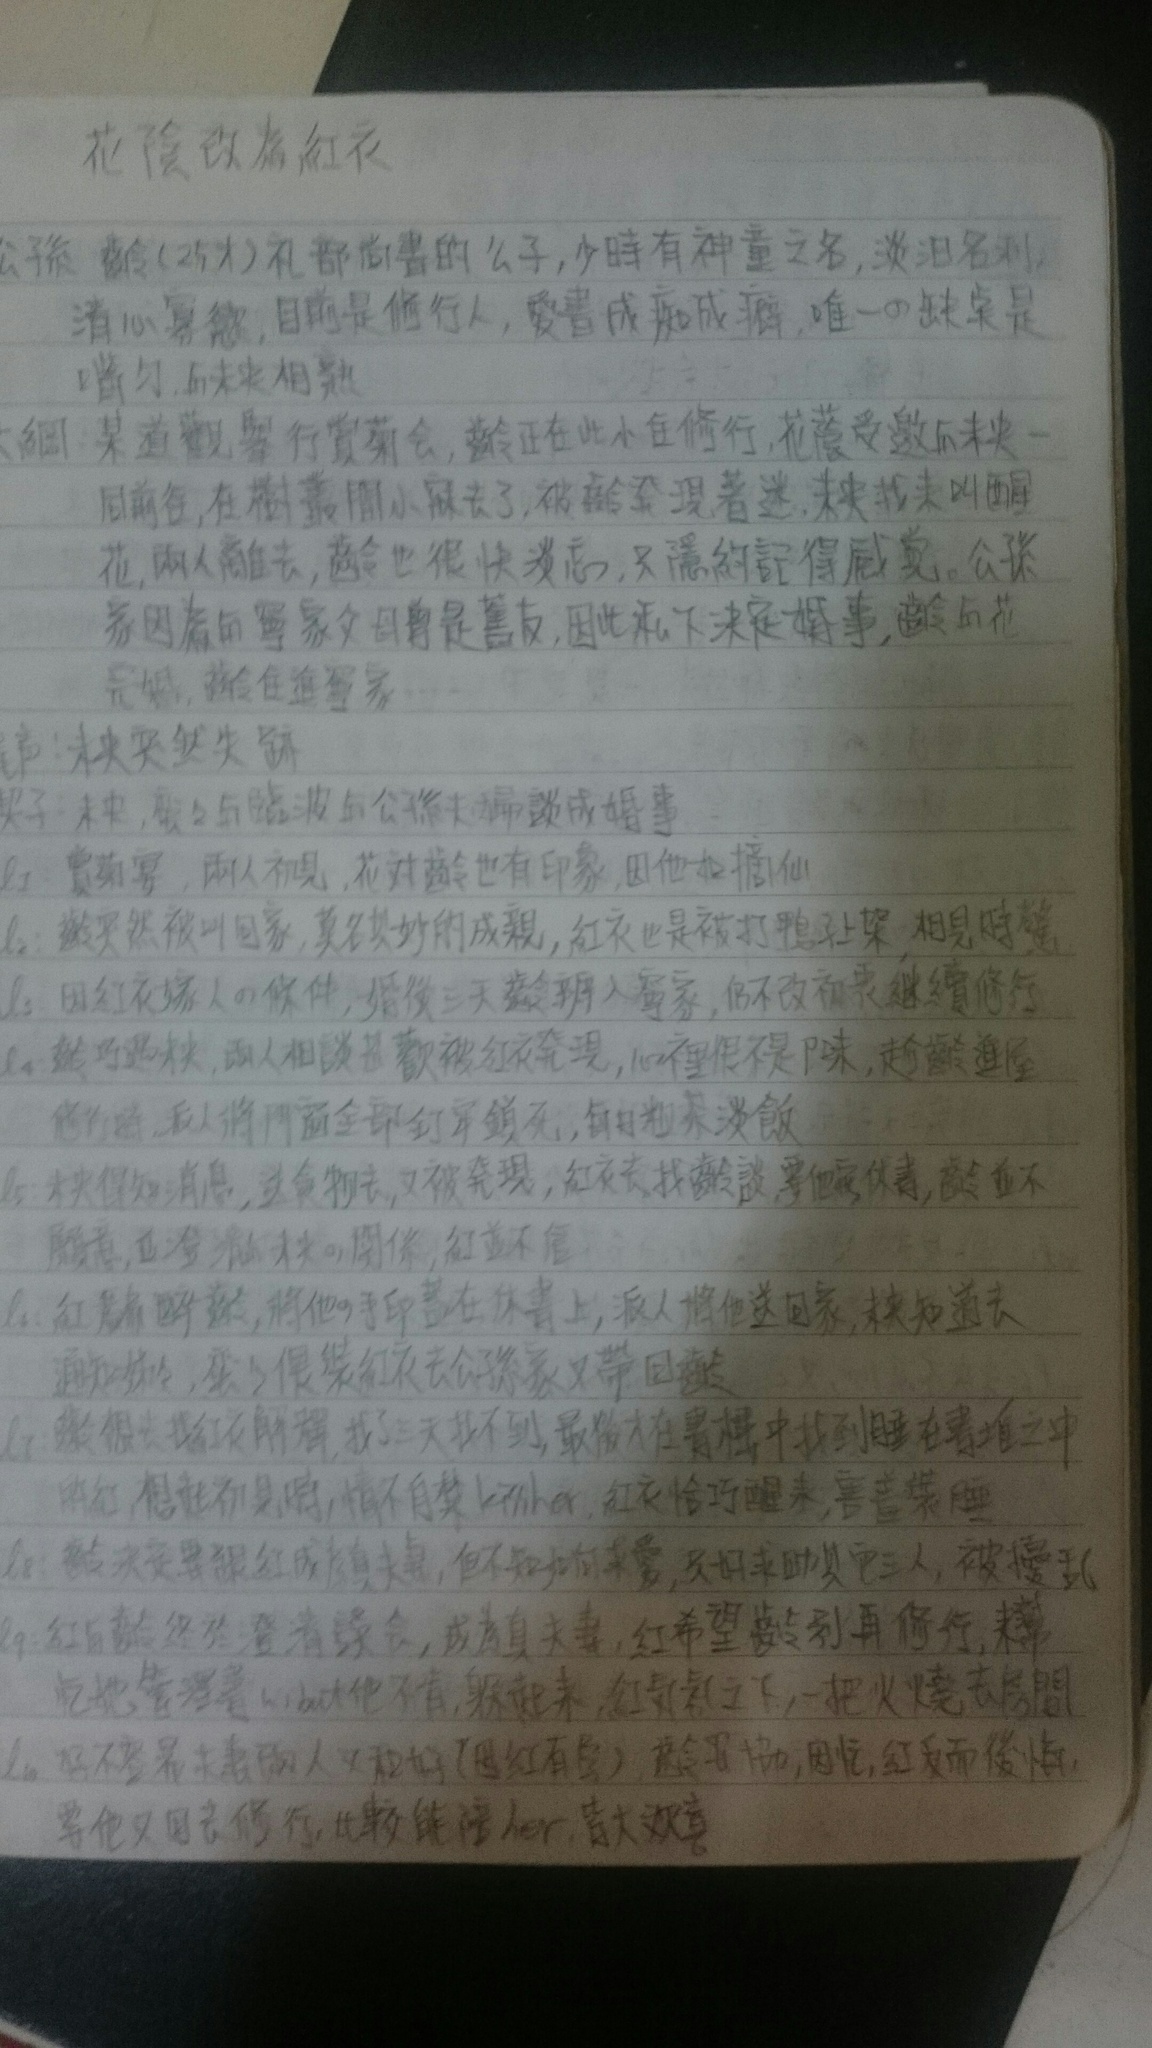 花陰改為紅衣
公孫 齡(25才)礼部尚書的公子,少時有神童之名,淡泊名利,
清心寡慾,目前是修行人,愛書成痴成癖,唯一の缺點是
嗜 与未央相熟
大綱:某道觀舉行賞菊会,齡正在此小住修行,花蔭受邀与未央一
同前往,在樹叢間小寐去了,被齡發現著迷,未央找來叫醒
花,兩人離去,齡也很快淡忘,只隱約記得感覺。公孫
家因為与寧家父母曾是舊友,因此私下決定婚事,齡与花
完婚,齡住進寧家
尾声:未央突然失踪
楔子:未央, 与臨波与公孫夫婦談成婚事
賞菊宴,兩人初見,花对齡也有印象,因他如摘仙
l2:齡突然被叫回家,莫名其妙的成親,紅衣也是被打鴨子上架,相見時
l3 因紅衣嫁人の條件,婚後三天齡搬入寧家,仍不改初衷継續修行
l4 齡巧遇未央,兩人相談甚歡被紅衣発現,心裡很不是味,趁齡進屋
修行時,派人將門窗全部釘牢鎖死,每日粗茶淡飯
l5 未央得知消息,送食物去,又被発現,紅衣去找齡談,要他寫休書,齡並不
願意,並澄清与未央の関係,紅並不信
l6:紅灌醉齡,將他の手印蓋在休書上,派人將他送回家,未央知道去
通知 , 假裝紅衣去公孫家又帶回齡
l7 齡想去找紅衣解釋,找了三天找不到,最後才在書樓中找到睡在書堆之中
的紅,想起初見時,情不自禁kiss her,紅衣恰巧醒來,害羞裝睡
l8:齡決定要跟紅成為真夫妻,但不知如何求愛,只好求助其它三人,被擾乱
l9:紅与齡終於登清誤会,成為真夫妻,紅希望齡別再修行,來幫
忙她管理 ,but他不肯,躲起來,紅氣氣之下,一把火燒去房間
l10 好不容易夫妻兩人又和好(因紅有孕),齡妥協,因忙,紅反而後悔,
要他又回去修行,比較能陪her,皆大歡喜